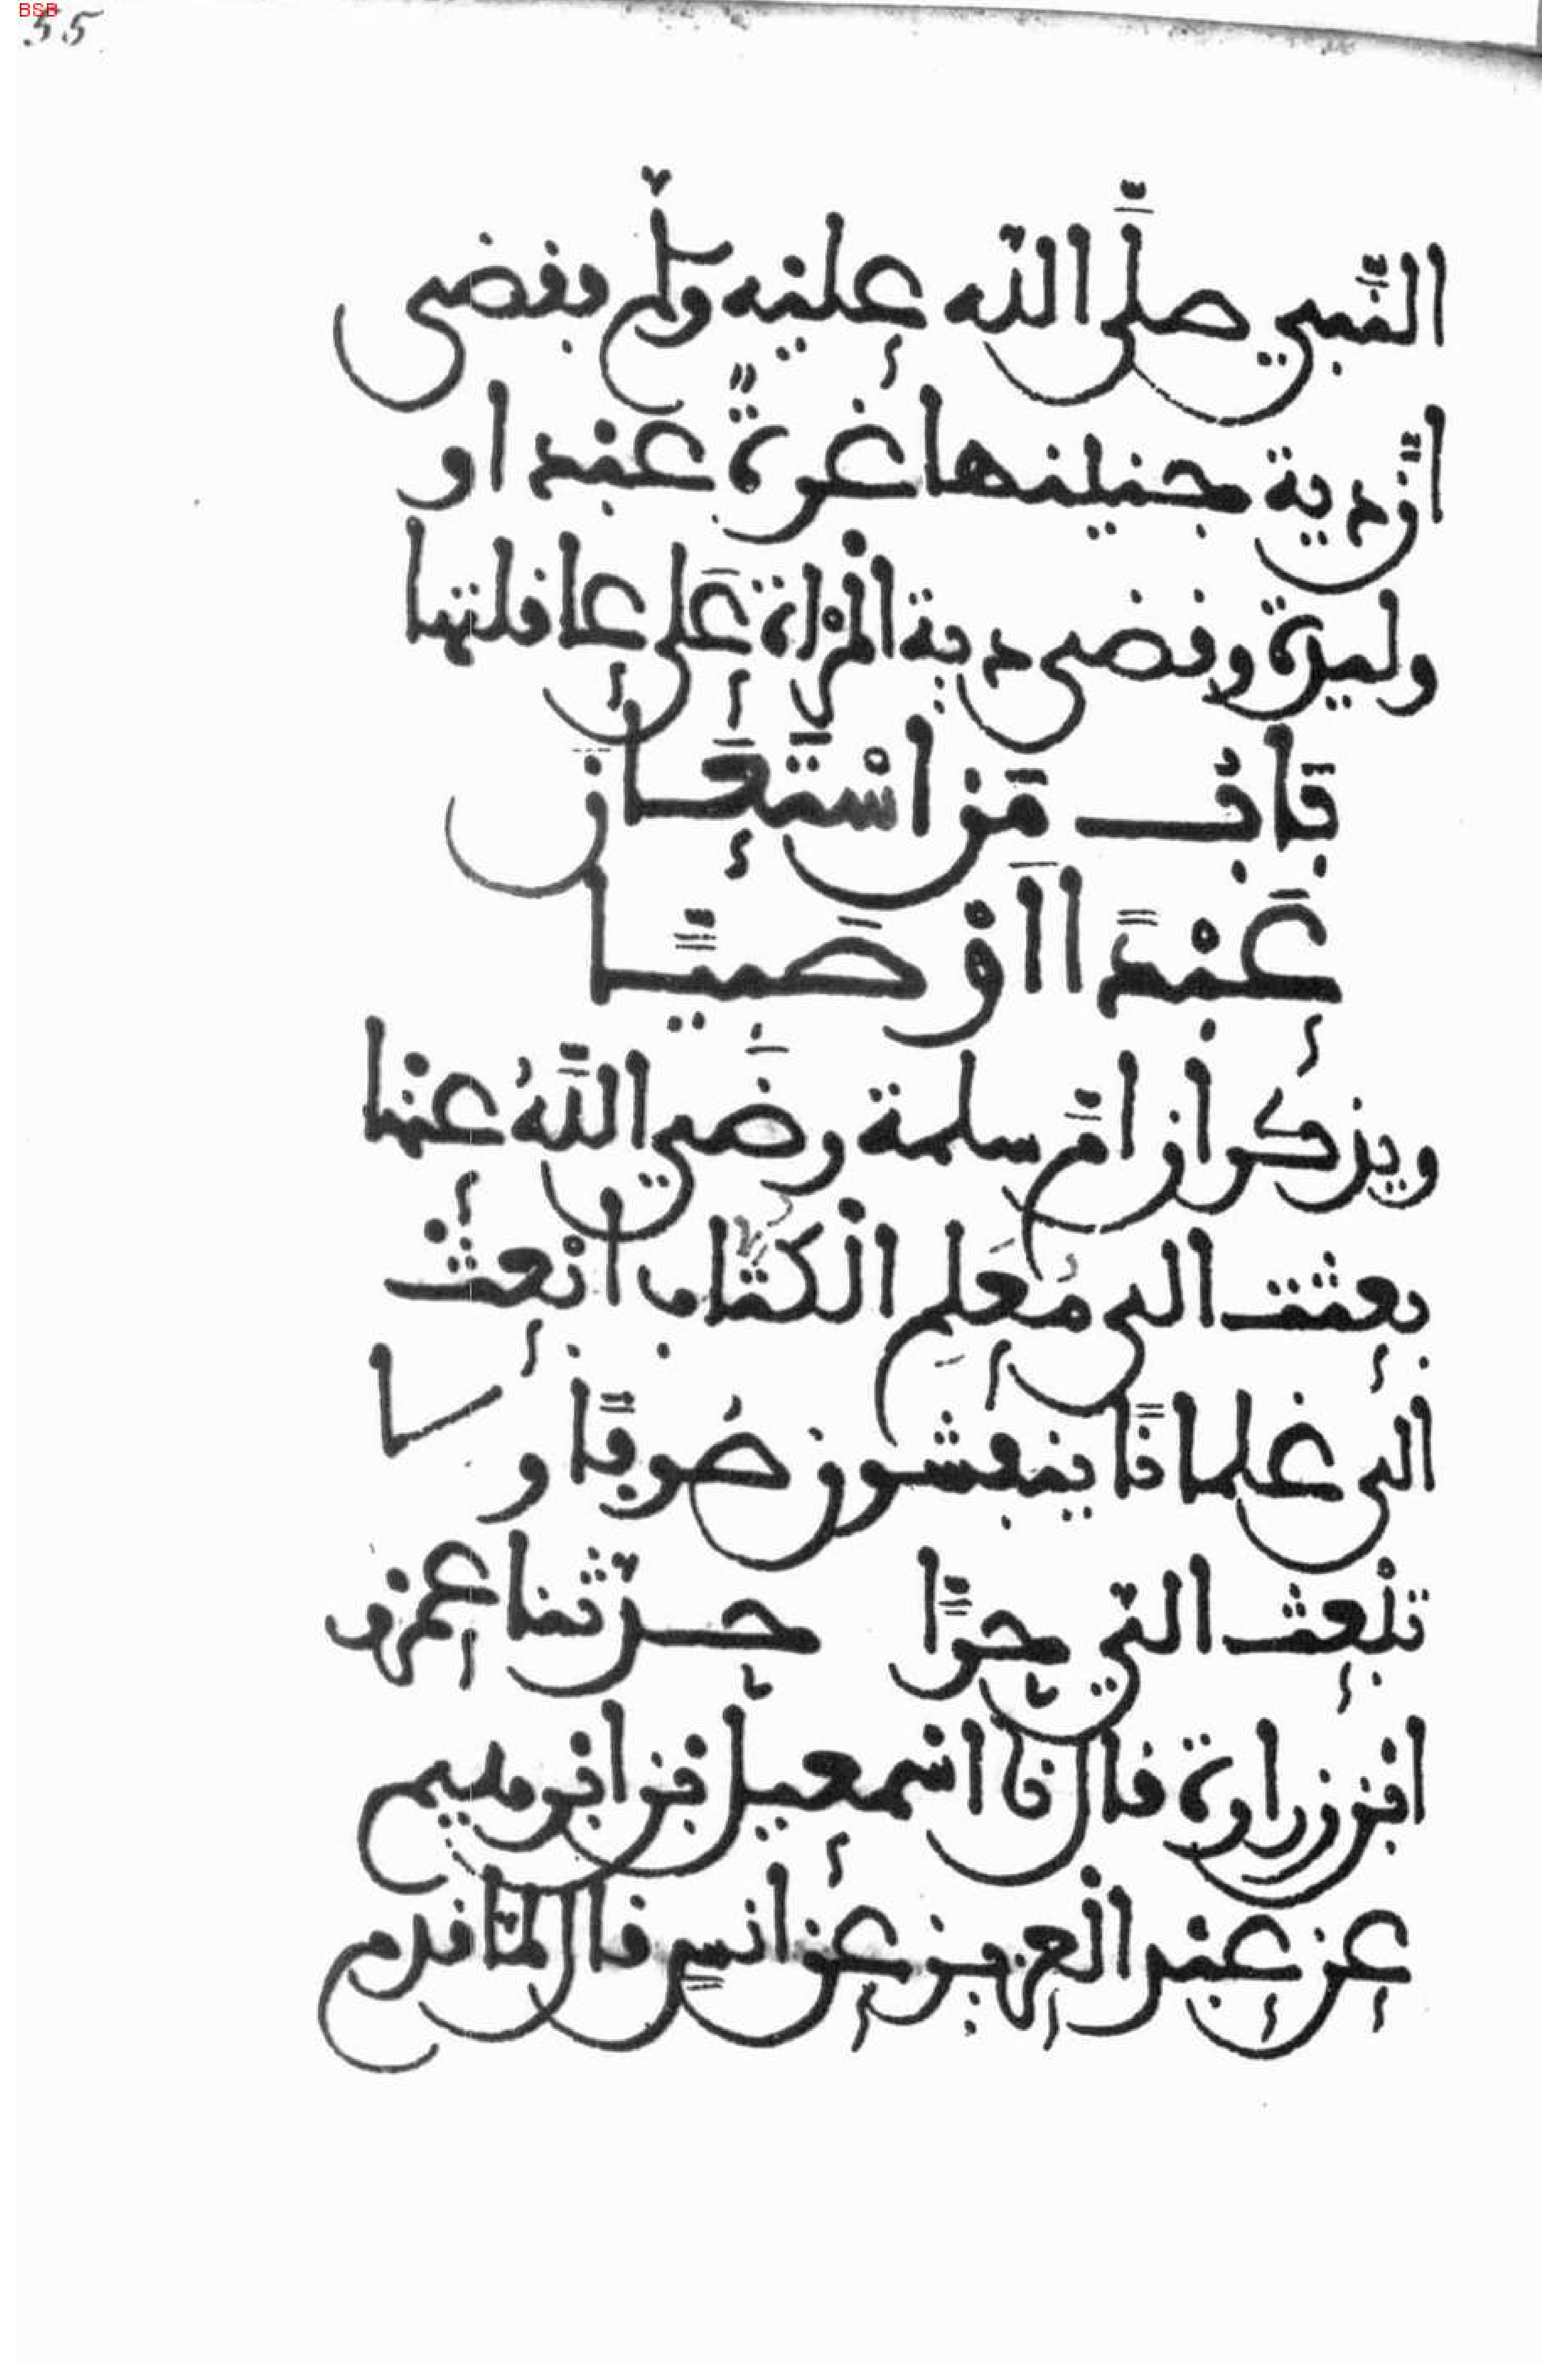 BSB
55
النَّبي صلَّى الله عليه وسلم فقضى
انّ دية جنينها غرةً عبد او
وليدة وقضى دية المرْاة عَلى عاقلتها
بَابُ مَن اسْتَعَان
عَبْدًا اوْ صَبيًّا
ويذكر ان امّ سلمة رضَي اللَّهُ عنْها
بعثت الى مُعَلم الْكُتّاب ابْعثْ
الى غلمانًا ينفشون صُوفًا ولا
تبْعث اليّ حرًّا حدّثنا عمْرو
ابْن زرارة قال نا اسْمعيل بْن ابْرهيم
عن عبْد الْعزيز عن انسٍ قال لمّا قدم